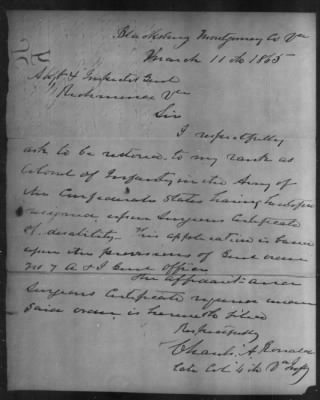 Blacksburg Montgomery Co Va
March 11th 1865
Adjt & Inspector Genl
Richmond Va
Sir
I respectfully
ask to be restored to my rank as
Colonel of Infantry in the Army of
the Confederate States having heretofore
resigned upon Surgeons Certificate
of disability. This application is based
upon the provisions of Genl order
No 7 A & I Genl Office
The affidavit and
Surgeons Certificate required under
said order is herewith filed
Respectfully
Charles A Ronald
Late Col 4th Va Infty